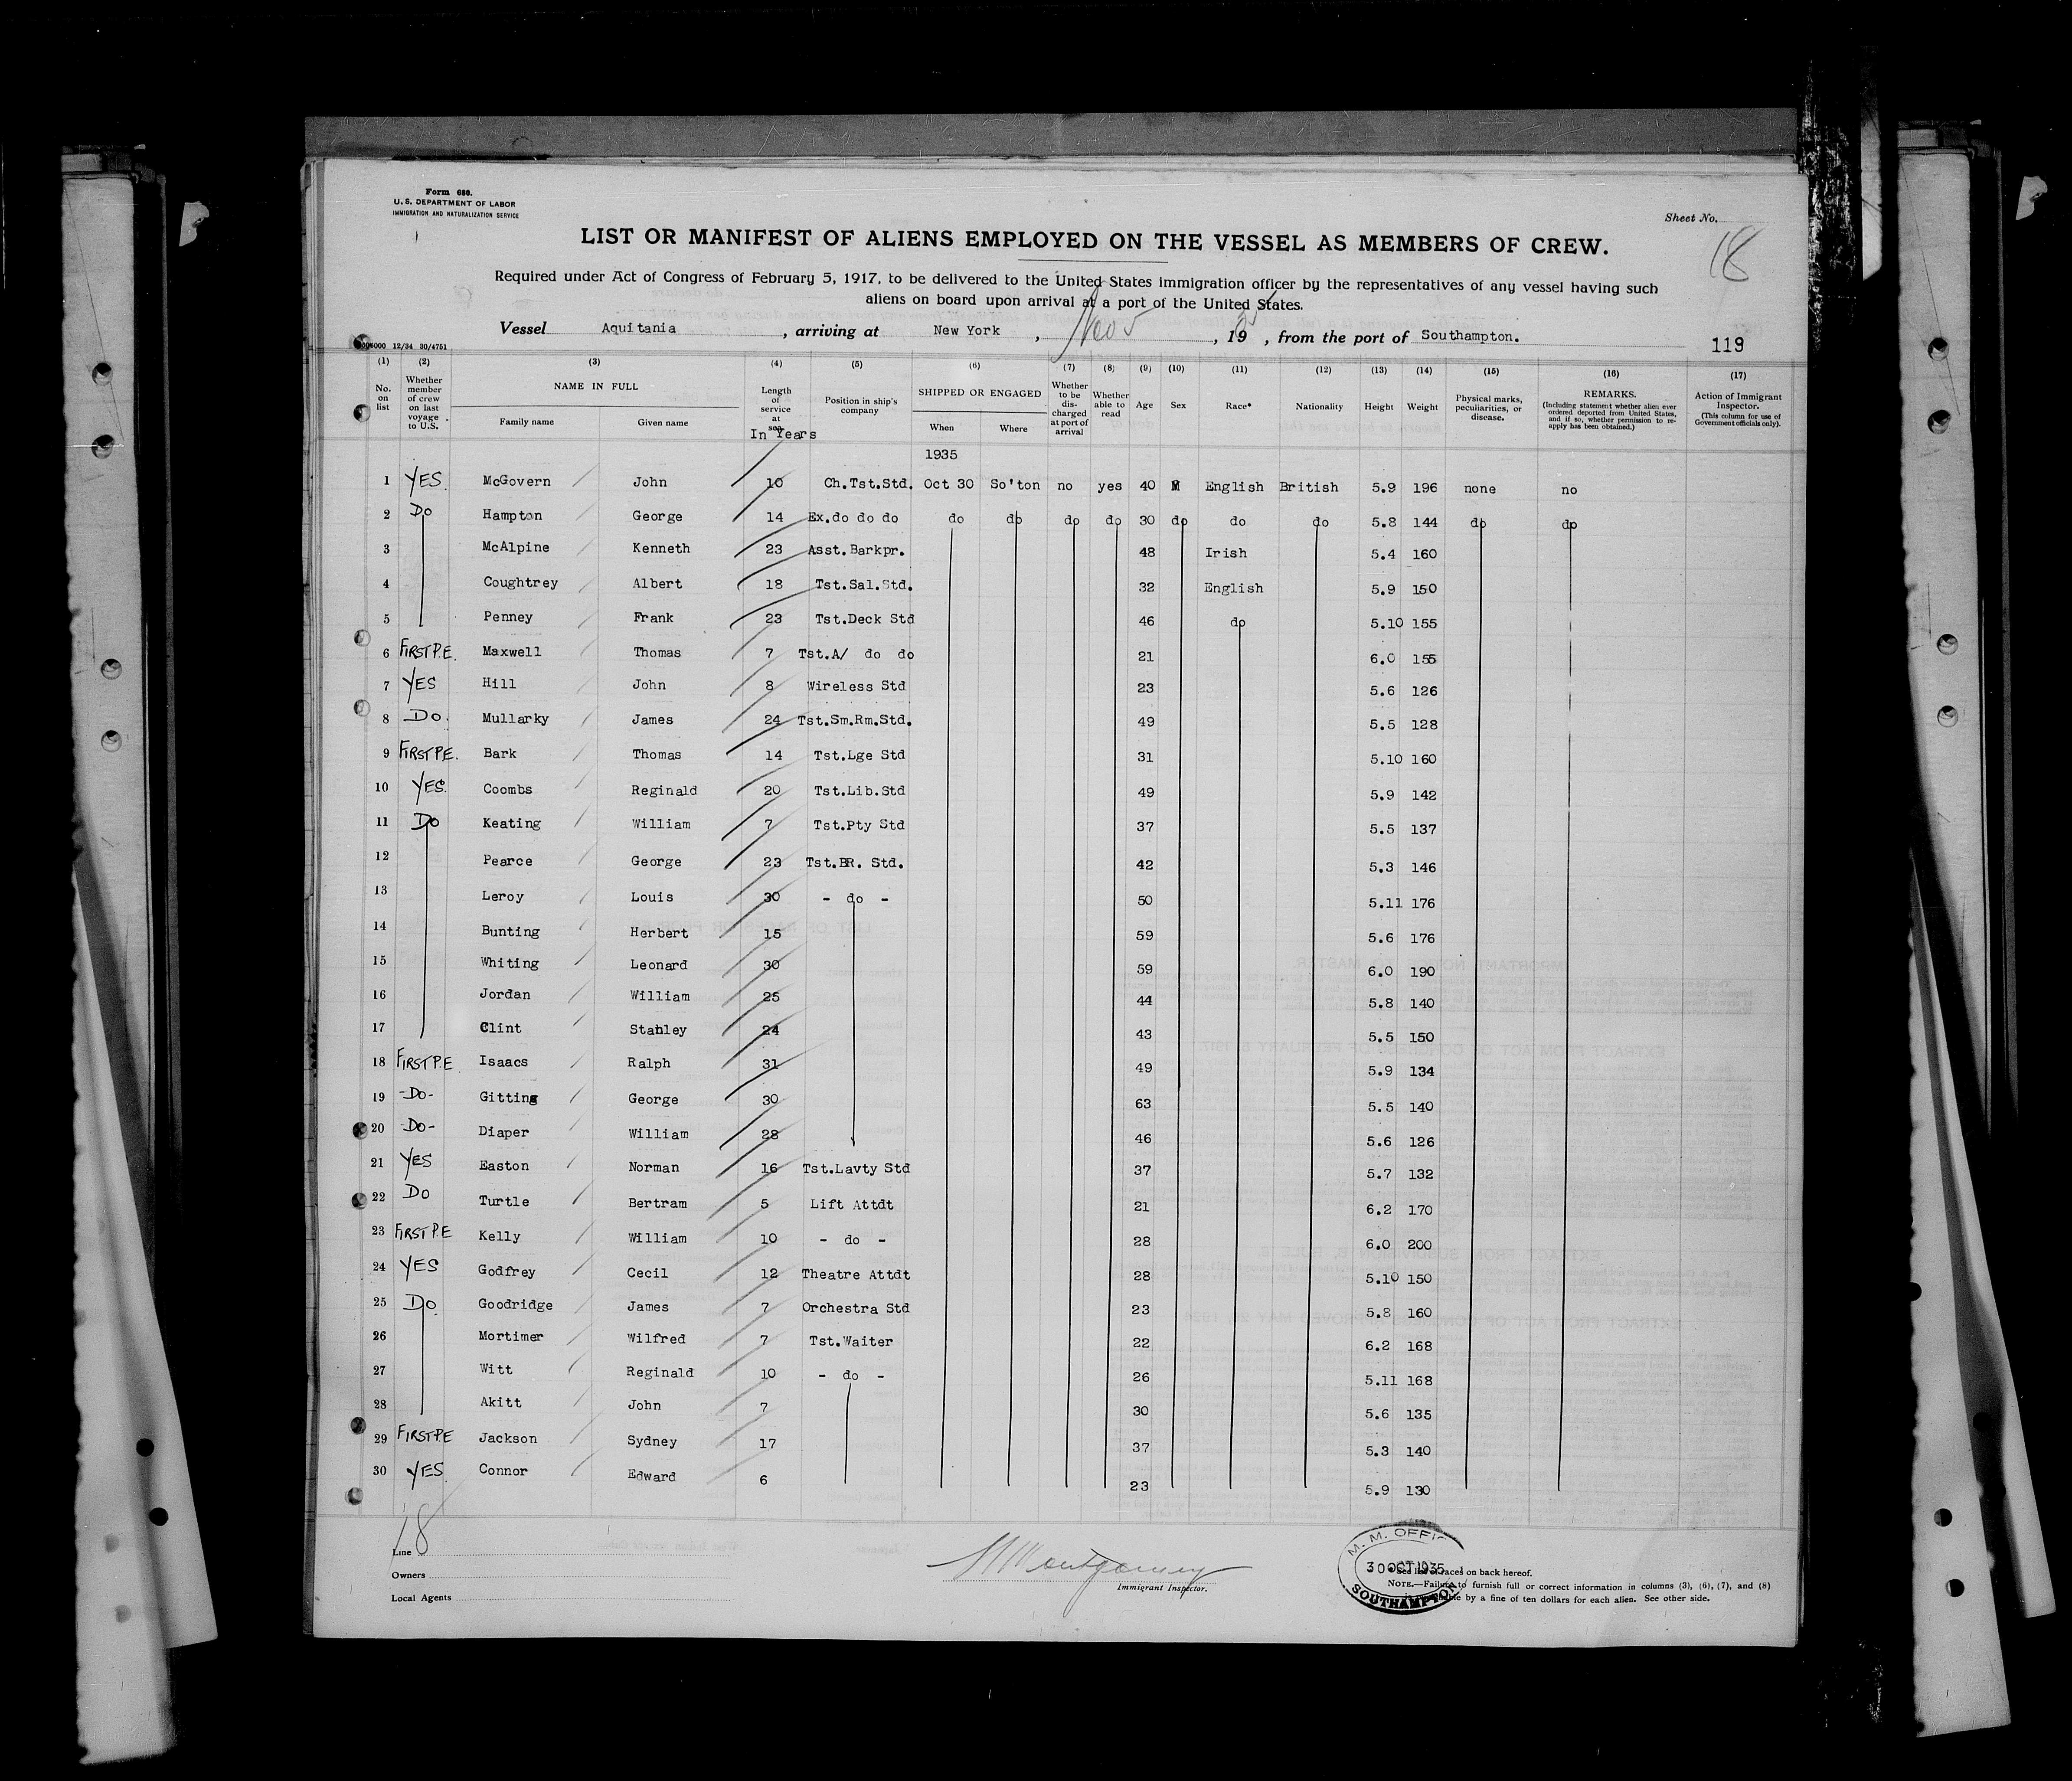 Form 680.
U. S. DEPARTMENT OF LABOR
IMMIGRATION AND NATURALIZATION SERVICE
Sheet No.
18
LIST OR MANIFEST OF ALIENS EMPLOYED ON THE VESSEL AS MEMBERS OF CREW.
Required under Act of Congress of February 5, 1917, to be delivered to the United States immigration officer by the representatives of any vessel having such
aliens on board upon arrival at a port of the United States.
Vessel Aquitania , arriving at New York , Nov 5 , 1935 , from the port of Southampton.
119
12/34 30/4751
(1) (2) (3) (4) (5) (6) (7) (8) (9) (10) (11) (12) (13) (14) (15) (16) (17)
No. on list
Whether member of crew on last voyage to U.S.
NAME IN FULL
Family name
Given name
Length of service at sea
In Years
Position in ship's company
SHIPPED OR ENGAGED
When
Where
Whether to be discharged at port of arrival
Whether able to read
Age
Sex
Race*
Nationality
Height
Weight
Physical marks, peculiarities, or disease.
REMARKS.
(Including statement whether alien ever ordered deported from United States, and if so, whether permission to re-apply has been obtained.)
Action of Immigrant Inspector.
(This column for use of Government officials only).
1935
1 YES. McGovern John 10 Ch.Tst.Std. Oct 30 So'ton no yes 40 M English British 5.9 196 none no
2 Do Hampton George 14 Ex.do do do do do do do 30 do do do 5.8 144 do do
3 McAlpine Kenneth 23 Asst.Barkpr. 48 Irish 5.4 160
4 Coughtrey Albert 18 Tst.Sal.Std. 32 English 5.9 150
5 Penney Frank 23 Tst.Deck Std 46 do 5.10 155
6 FIRST P.E. Maxwell Thomas 7 Tst.A/ do do 21 6.0 155
7 YES Hill John 8 Wireless Std 23 5.6 126
8 Do. Mullarky James 24 Tst.Sm.Rm.Std. 49 5.5 128
9 FIRST P.E. Bark Thomas 14 Tst.Lge Std 31 5.10 160
10 YES. Coombs Reginald 20 Tst.Lib.Std 49 5.9 142
11 Do Keating William 7 Tst.Pty Std 37 5.5 137
12 Pearce George 23 Tst.BR. Std. 42 5.3 146
13 Leroy Louis 30 - do - 50 5.11 176
14 Bunting Herbert 15 59 5.6 176
15 Whiting Leonard 30 59 6.0 190
16 Jordan William 25 44 5.8 140
17 Clint Stanley 24 43 5.5 150
18 FIRST P.E Isaacs Ralph 31 49 5.9 134
19 -Do- Gitting George 30 63 5.5 140
20 -Do- Diaper William 28 46 5.6 126
21 YES Easton Norman 16 Tst.Lavty Std 37 5.7 132
22 Do Turtle Bertram 5 Lift Attdt 21 6.2 170
23 FIRST P.E Kelly William 10 - do - 28 6.0 200
24 YES Godfrey Cecil 12 Theatre Attdt 28 5.10 150
25 Do. Goodridge James 7 Orchestra Std 23 5.8 160
26 Mortimer Wilfred 7 Tst.Waiter 22 6.2 168
27 Witt Reginald 10 - do - 26 5.11 168
28 Akitt John 7 30 5.6 135
29 FIRST P.E Jackson Sydney 17 37 5.3 140
30 YES Connor Edward 6 23 5.9 130
18
Line
Owners
Local Agents
Montgomery
Immigrant Inspector.
M. M. OFFIC
30 OCT 1935
SOUTHAMPTON
* See list of races on back hereof.
NOTE.—Failure to furnish full or correct information in columns (3), (6), (7), and (8)
by a fine of ten dollars for each alien. See other side.